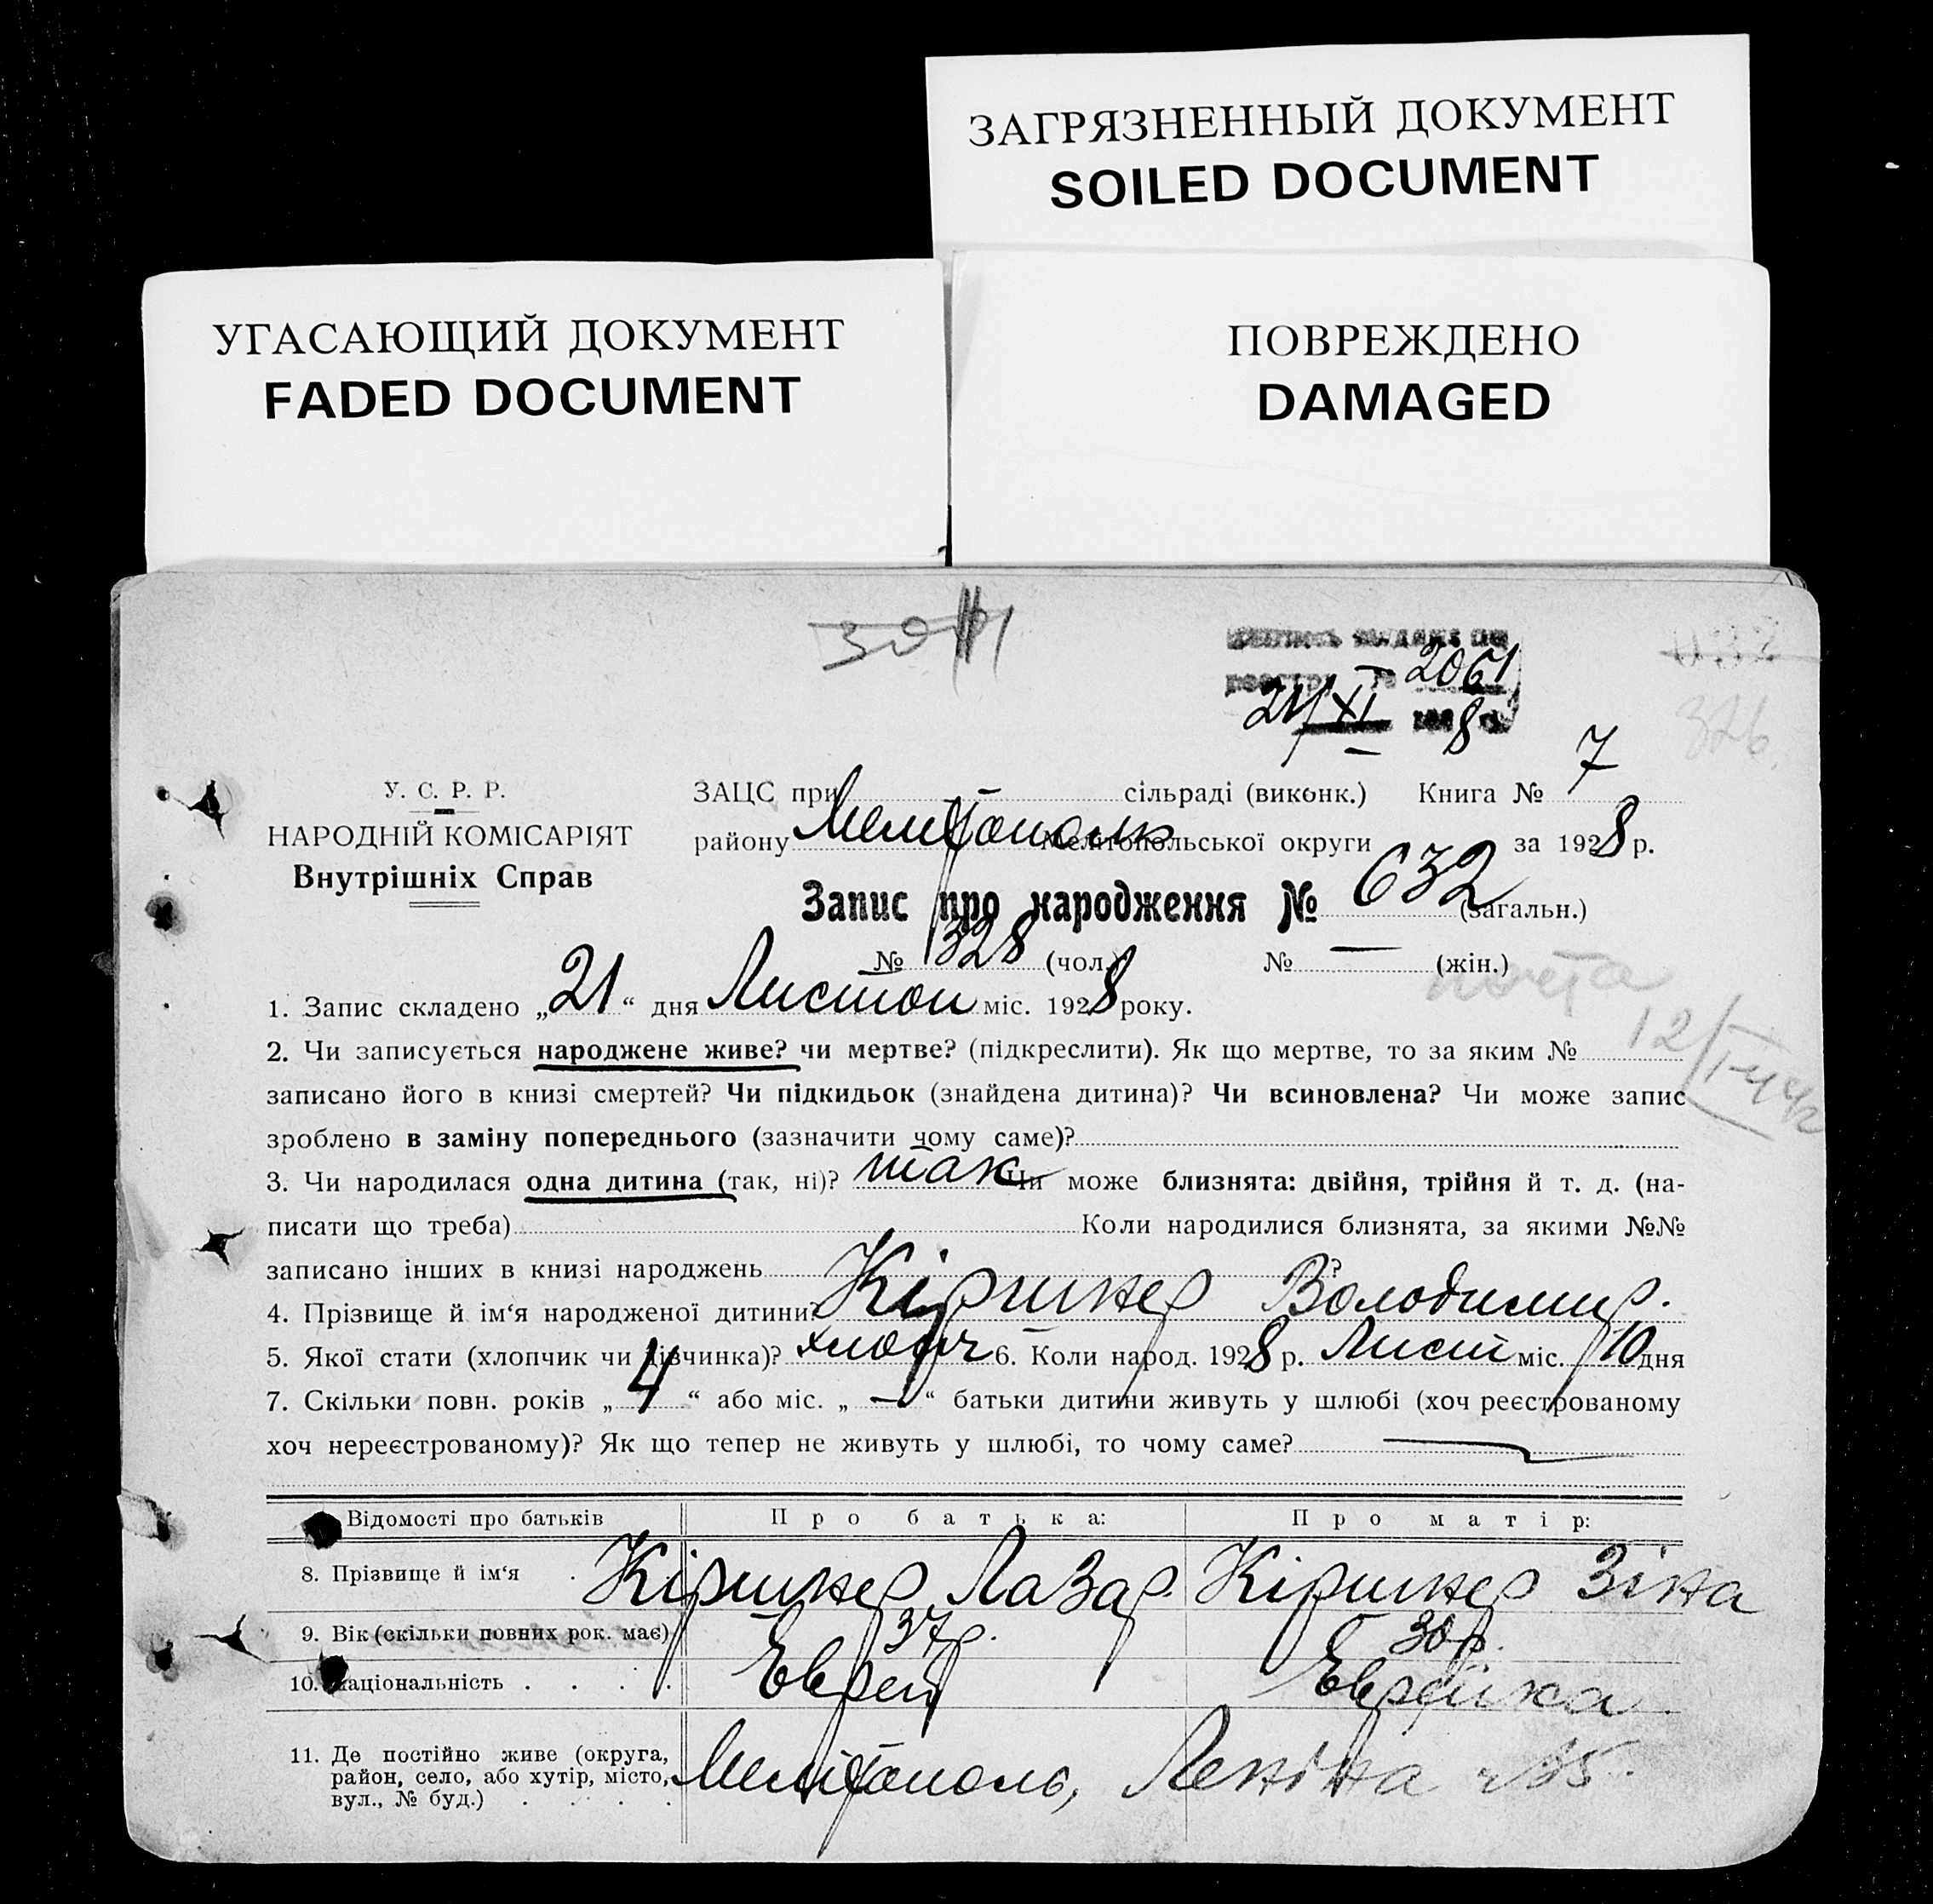 ЗАГРЯЗНЕННЫЙ ДОКУМЕНТ
SOILED DOCUMENT
УГАСАЮЩИЙ ДОКУМЕНТ
FADED DOCUMENT
ПОВРЕЖДЕНО
DAMAGED
2061
21/XI 8
326
У. С. Р. Р.
НАРОДНІЙ КОМІСАРІЯТ
Внутрішніх Справ
ЗАЦС при сільраді (виконк.) Книга № 7
району Мелітополь Мелітопольської округи за 1928 р.
Запис про народження № 632 (загальн.)
№ 328 (чол.) № — (жін.)
почта
1. Запис складено „21“ дня Листоп міс. 1928 року.
2. Чи записується народжене живе? чи мертве? (підкреслити). Як що мертве, то за яким №
записано його в книзі смертей? Чи підкидьок (знайдена дитина)? Чи всиновлена? Чи може запис
зроблено в заміну попереднього (зазначити чому саме)?
3. Чи народилася одна дитина (так, ні)? так Чи може близнята: двійня, трійня й т. д. (на-
писати що треба) Коли народилися близнята, за якими №№
записано інших в книзі народжень ?
4. Прізвище й ім‘я народженої дитини? Кіршнер Володимир.
5. Якої стати (хлопчик чи дівчинка)? хлопч 6. Коли народ. 1928 р. Лист міс. 10 дня
7. Скільки повн. років „4“ або міс. „—“ батьки дитини живуть у шлюбі (хоч реєстрованому
хоч нереєстрованому)? Як що тепер не живуть у шлюбі, то чому саме? —
Відомості про батьків Про батька: Про матір:
8. Прізвище й ім‘я . Кіршнер Лазар. Кіршнер Зіна
9. Вік (скільки повних рок. має) 37р. 30р.
10. Національність . . . . Еврей Еврейка
11. Де постійно живе (округа,
район, село, або хутір, місто,
вул., № буд.) . . . . Мелітополь, Леніна